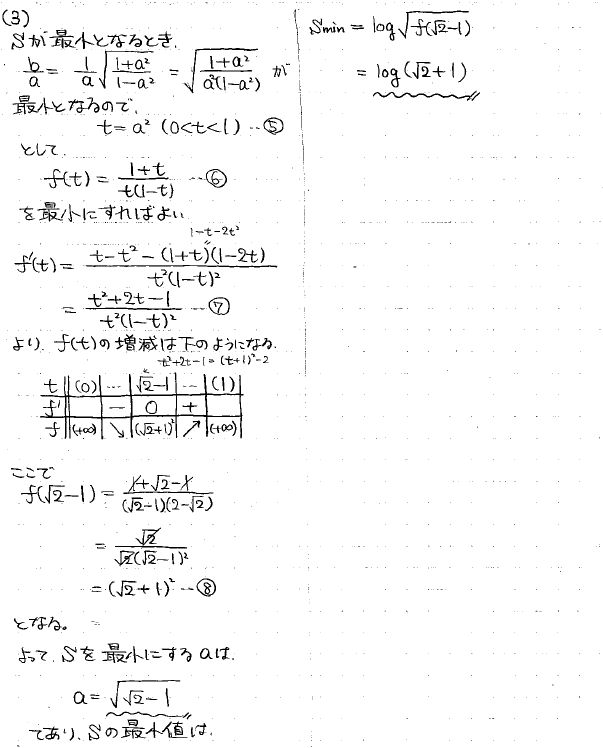 (3)
Sが最小となるとき、
b/a = 1/a √((1+a²)/(1-a²)) = √((1+a²)/(a²(1-a²))) が
最小となるので、
t = a² (0<t<1) …⑤
として、
f(t) = (1+t)/(t(1-t)) …⑥
を最小にすればよい
1-t-2t²
f'(t) = (t-t²-(1+t)(1-2t))/(t²(1-t)²)
= (t²+2t-1)/(t²(1-t)²) …⑦
より、f(t)の増減は下のようになる。
t²+2t-1=(t+1)²-2
t | (0) | … | √2-1 | … | (1)
f' | | - | 0 | + |
f | (+∞) | ↘ | (√2+1)² | ↗ | (+∞)
ここで
f(√2-1) = (1+√2-1)/((√2-1)(2-√2))
= √2/(√2(√2-1)²)
= (√2+1)² …⑧
となる。
よって、Sを最小にするaは、
a = √(√2-1)
であり、Sの最小値は、
Smin = log√(f(√2-1))
= log(√2+1)